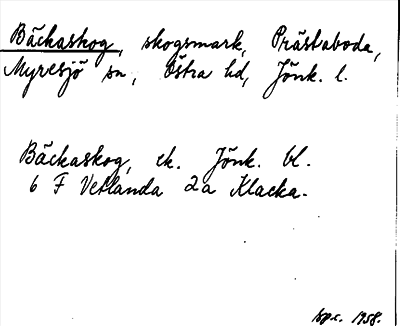 Bäckaskog, skogsmark, Prästaboda,
Myresjö sn, Östra hd, Jönk. l.
Bäckaskog, ek. Jönk. bl.
6 F Vetlanda 2a Klacka.
sp.c. 1958.